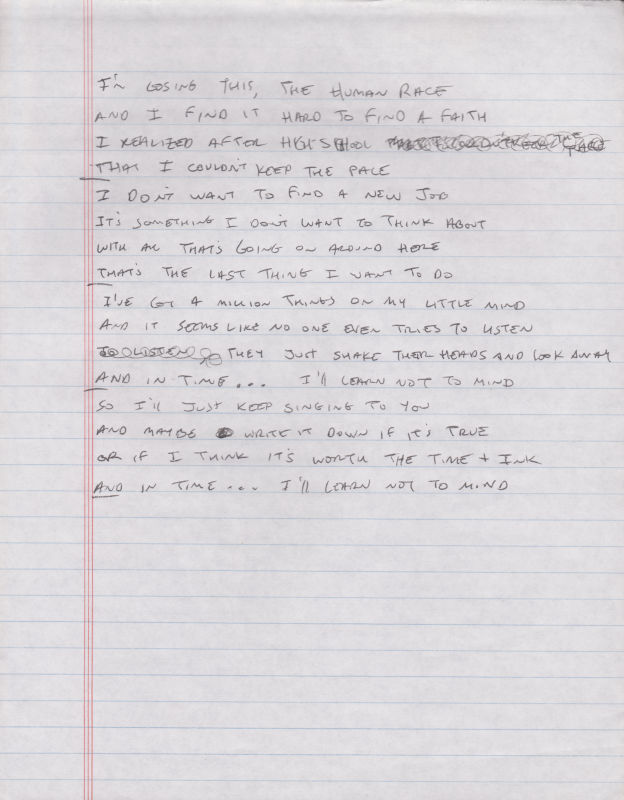 I'm losing this, the human race
And I find it hard to find a faith
I realized after high school the pace
That I couldn't keep the pace
I don't want to find a new job
It's something I don't want to think about
With all that's going on around here
That's the last thing I want to do
I've got a million things on my little mind
And it seems like no one even tries to listen
to listen they just shake their heads and look away
And in time... I'll learn not to mind
So I'll just keep singing to you
And maybe write it down if it's true
Or if I think it's worth the time + ink
And in time... I'll learn not to mind